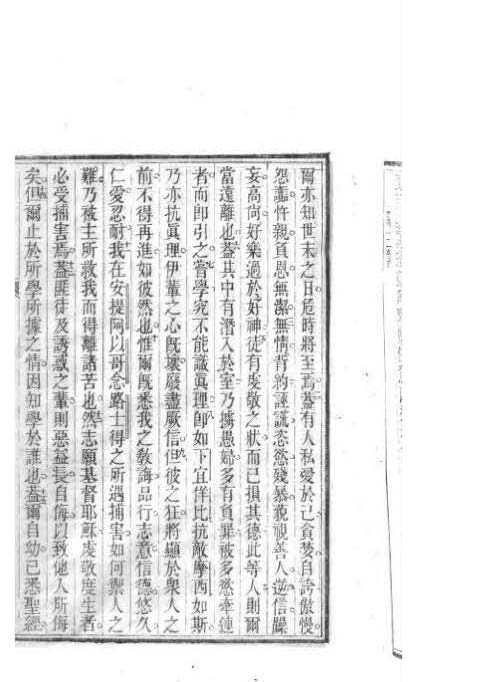 爾亦知世末之日危時將至焉蓋有人私愛於己貪婪自誇傲慢
怨讟忤親負恩無潔無情背約誣謊恣慾殘暴藐視善人逆信躁
妄高尚好樂過於好神徒有虔敬之狀而已損其德此等人則爾
當遠離也蓋其中有潛入於室乃擄愚婦多有負罪被多慾牽連
者而即引之嘗學究不能識眞理即如下宜佯比抗敵摩西如斯
乃亦抗眞理伊輩之心旣壞廢盡厥信但彼之狂將顯於衆人之
前不得再進如彼然也惟爾旣悉我之敎誨品行志意信德悠久
仁愛忍耐我在安提阿以哥念路士得之所遇捕害如何禦人之
難乃被主所救我而得離諸苦也然志願基督耶穌虔敬度生者
必受捕害焉蓋匪徒及誘惑之輩則惡益長自侮以致他人所侮
矣但爾止於所學所據之情因知學於誰也蓋爾自幼已悉聖經